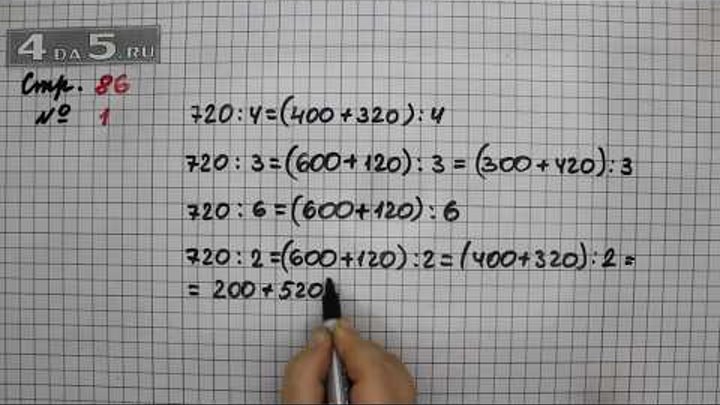 4 DA 5.RU
Стр. 86
№ 1
720:4=(400+320):4
720:3=(600+120):3=(300+420):3
720:6=(600+120):6
720:2=(600+120):2=(400+320):2=
=200+520